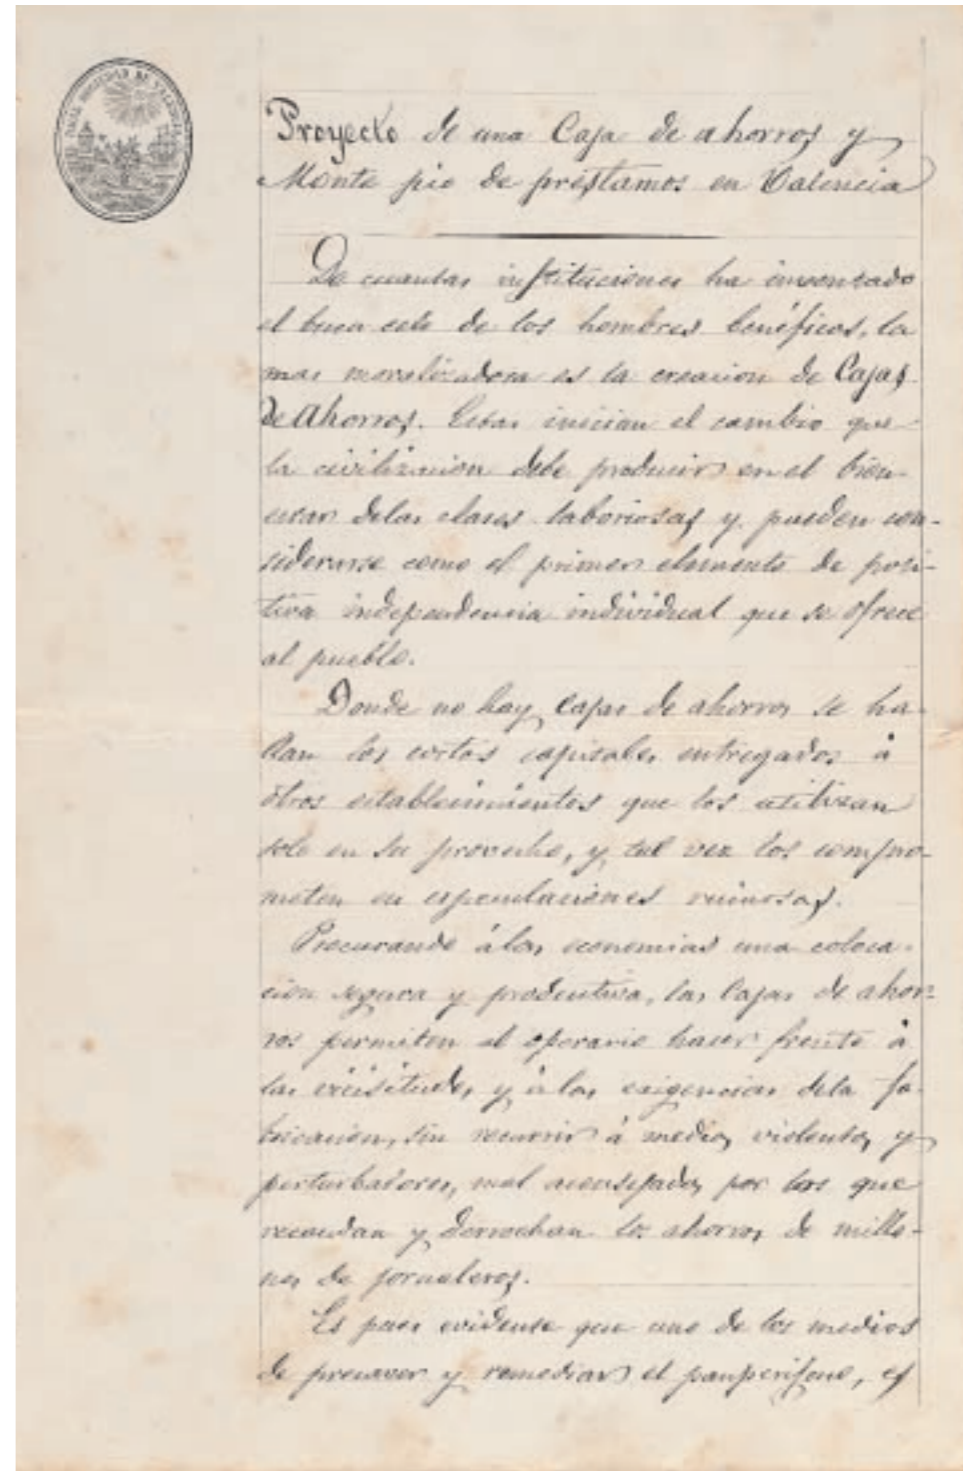 REAL SOCIEDAD DE VALENCIA
Proyecto de una Caja de ahorros y
Monte pio de préstamos en Valencia
De cuantas instituciones ha inventado
el buen celo de los hombres benéficos, la
mas moralizadora es la creacion de Cajas
de Ahorros. Estas inician el cambio que
la civilizacion debe producir en el bien-
estar delas clases laboriosas y pueden con-
siderarse como el primer elemento de posi-
tiva independencia individual que se ofrece
al pueblo.
Donde no hay cajas de ahorros se ha-
llan los cortos capitales entregados á
otros establecimientos que los utilizan
solo en su provecho, y tal vez los compro-
meten en especulaciones ruinosas.
Procurando álas economias una coloca-
cion segura y productiva, las Cajas de ahor-
ros permiten al operario hacer frente á
las vicisitudes y á las exigencias dela fa-
bricacion, sin recurrir á medios violentos y
perturbadores, mal aconsejados por los que
recaudan y derrochan los ahorros de millo-
nes de jornaleros.
Es pues evidente que uno de los medios
de precaver y remediar el pauperismo, es